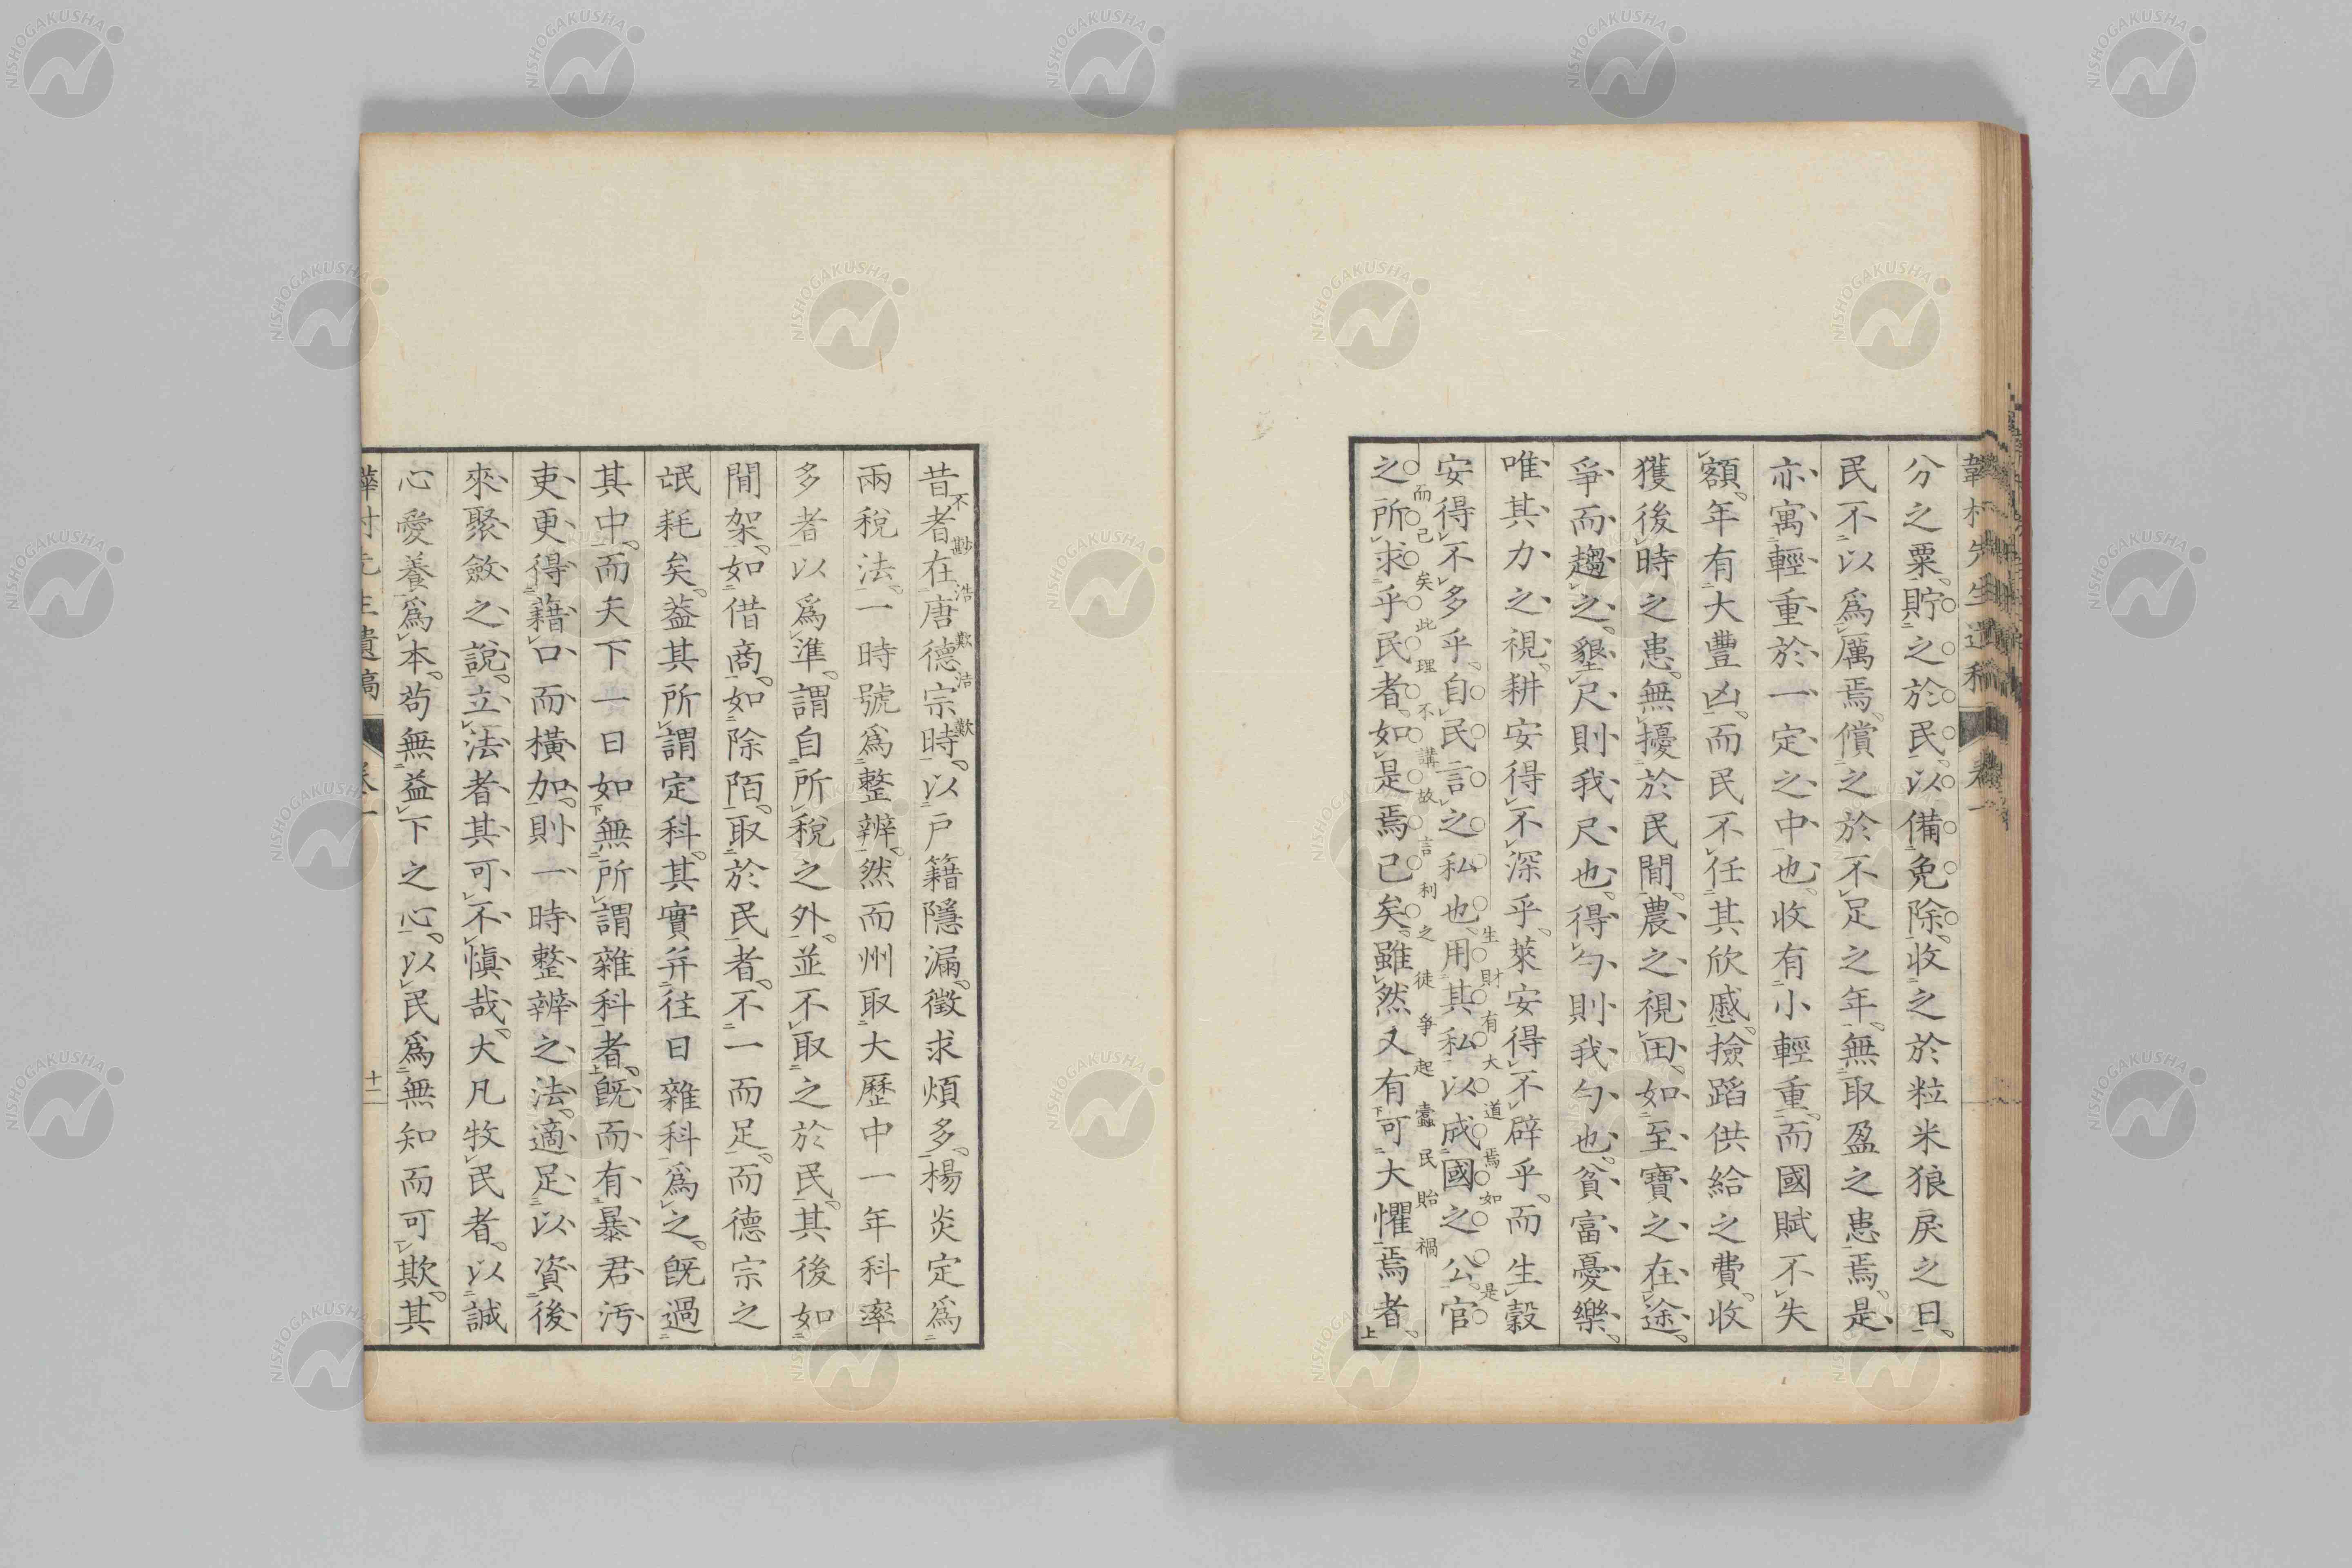 韋村先生遺稿 卷一
分之粟貯之於民以備免除收之於粒米狼戾之日
民不以為厲焉償之於不足之年無取盈之患焉是
亦寓輕重於一定之中也收有小輕重而國賦不失
額年有大豐凶而民不任其欣慼撿蹈供給之費收
獲後時之患無擾於民間農之視田如至寶之在途
爭而趨之墾尺則我尺也得勺則我勺也貧富憂樂
唯其力之視耕安得不深乎萊安得不辟乎而生穀
安得不多乎自民言之私也用其私以成國之公官
生財有大道焉如是
之所求乎民者如是焉已矣雖然又有可大懼焉者
而已矣此理不講故言利之徒爭起蠹民貽禍
昔者在唐德宗時以戶籍隱漏徵求煩多楊炎定為
不勘浩歎浩歎
兩稅法一時號爲整辨然而州取大歷中一年科率
多者以爲準謂自所稅之外並不取之於民其後如
間架如借商如除陌取於民者不一而足而德宗之
氓耗矣葢其所謂定科其實弁往日雜科爲之旣過
其中而天下一日如無所謂雜科者旣而有暴君汚
吏更得藉口而橫加則一時整辨之法適足以資後
來聚斂之說立法者其可不愼哉大凡牧民者以誠
心愛養爲本苟無益下之心以民爲無知而可欺其
韡村先生遺稿 卷一 十二